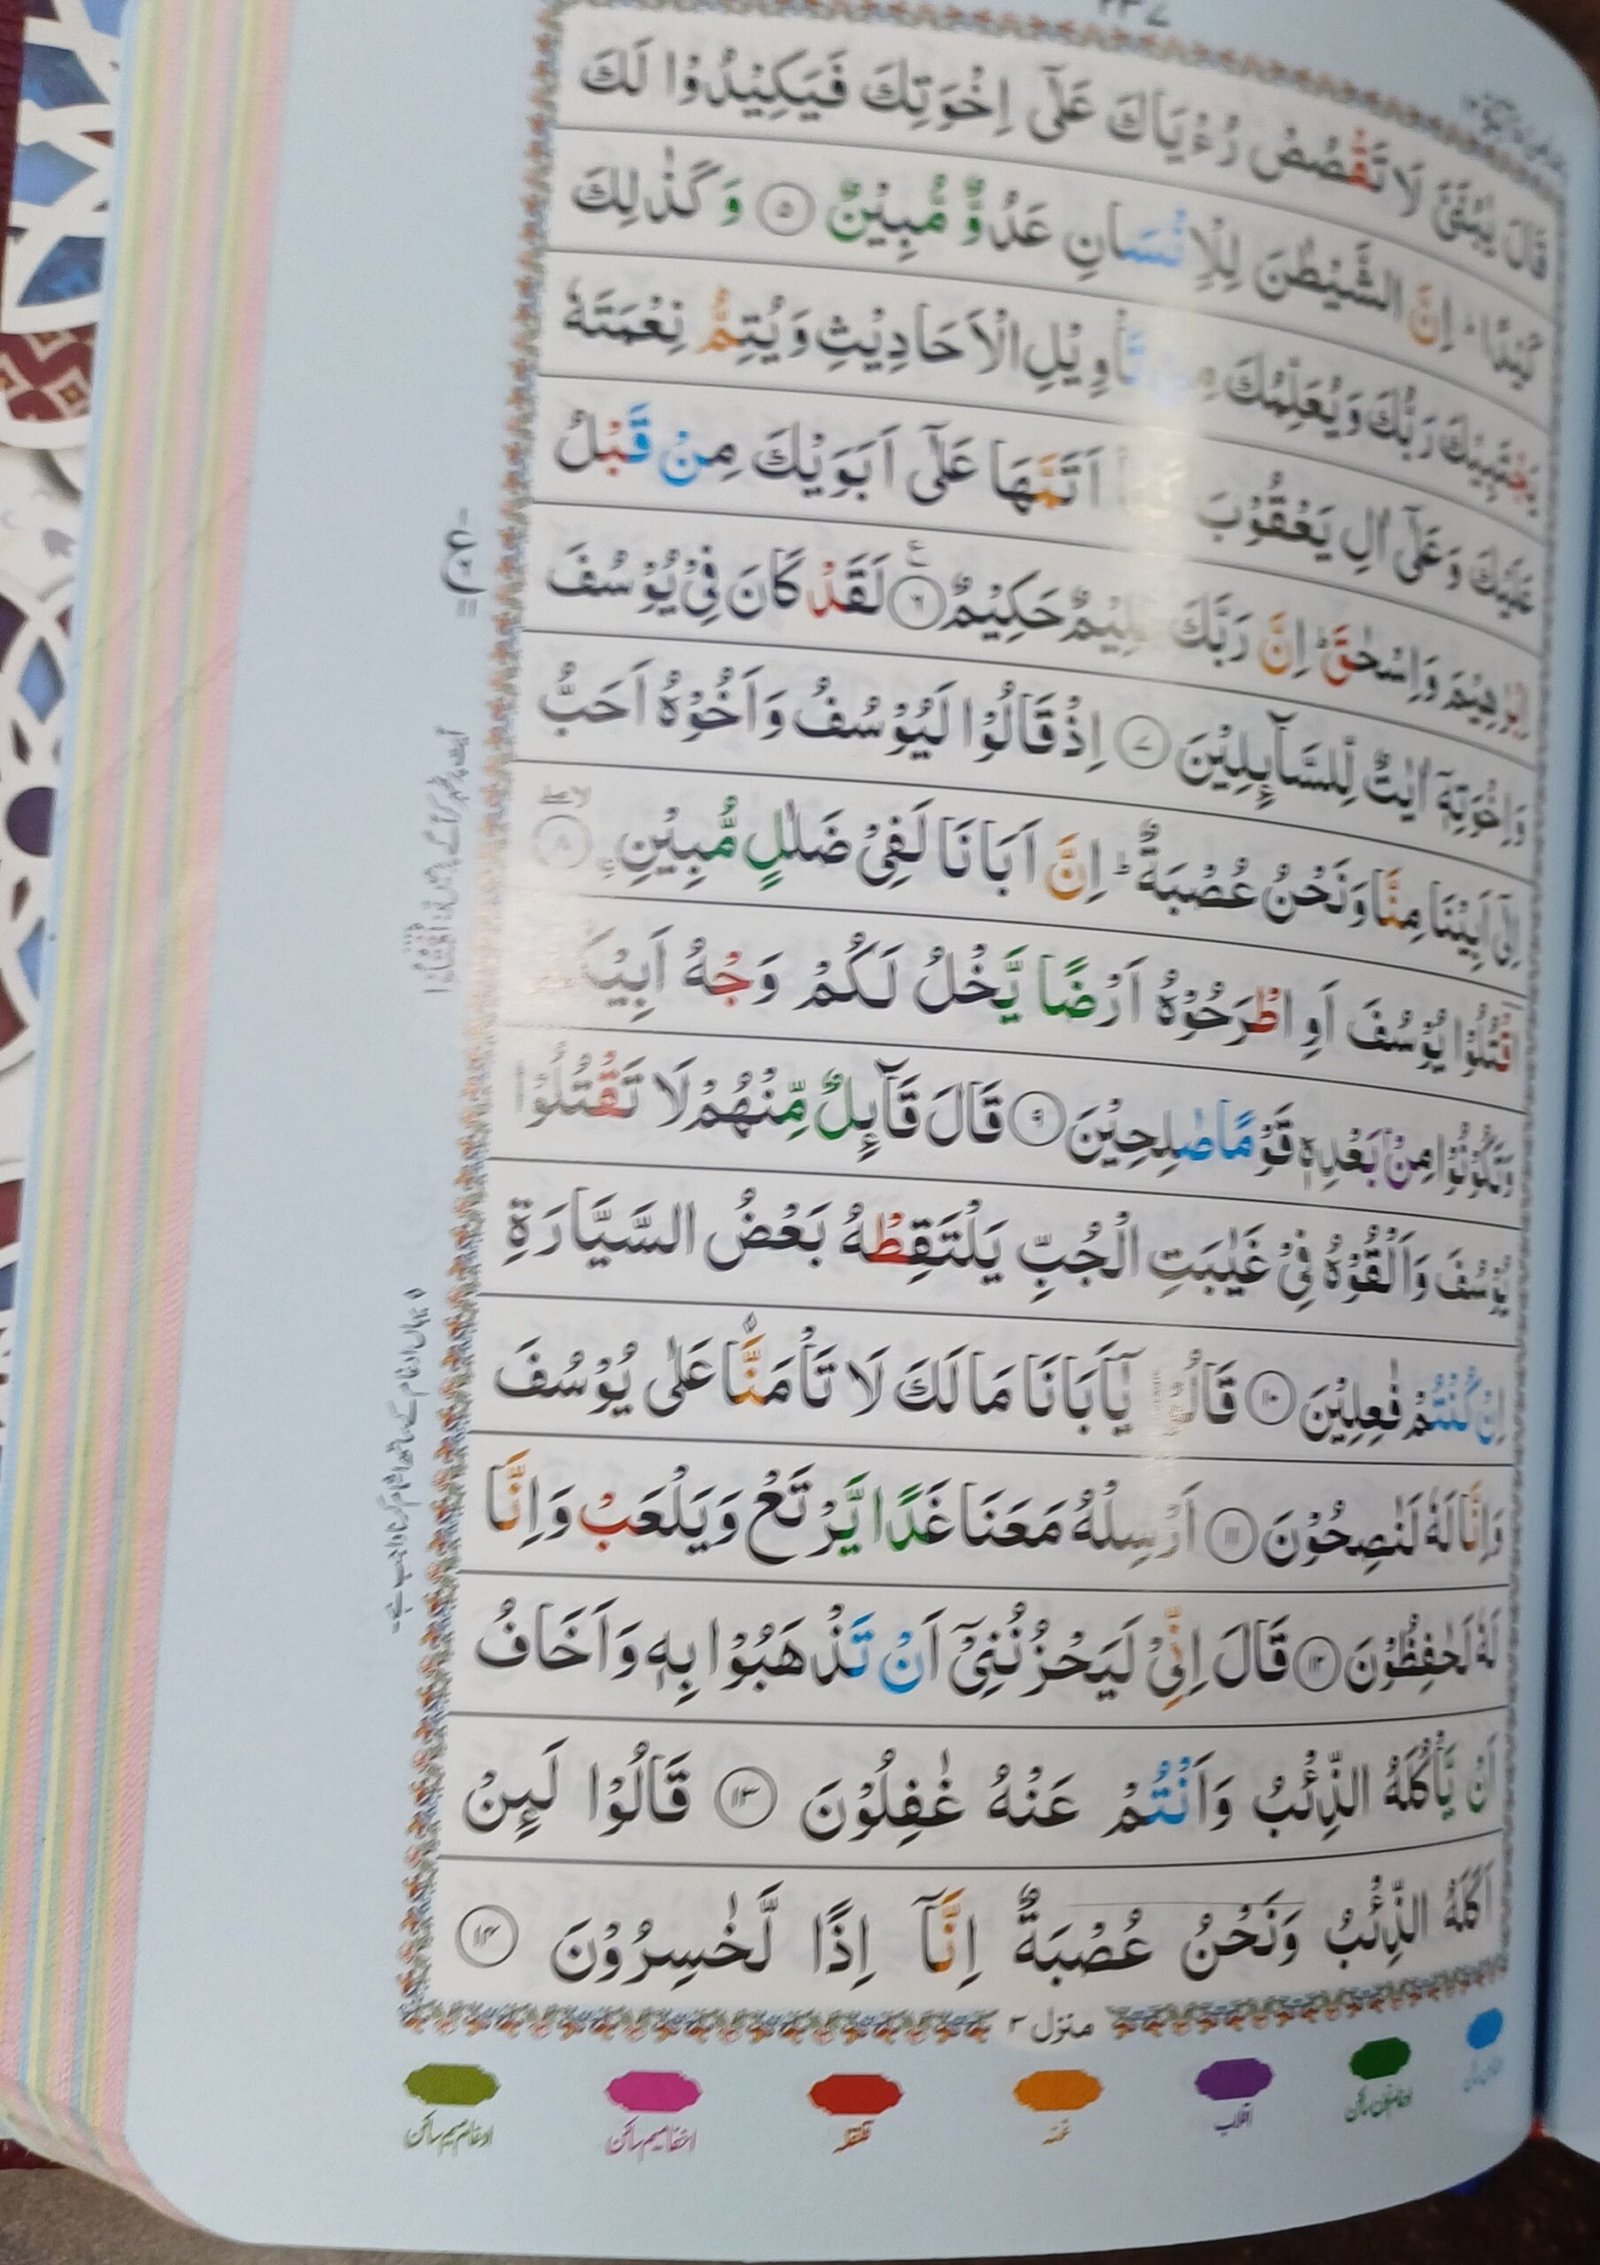 ۲۳۷
قَالَ يٰبُنَىَّ لَا تَقْصُصْ رُءْيَاكَ عَلٰٓى اِخْوَتِكَ فَيَكِيْدُوْا لَكَ
كَيْدًا ؕ اِنَّ الشَّيْطٰنَ لِلْاِنْسَانِ عَدُوٌّ مُّبِيْنٌ ۝۵ وَ كَذٰلِكَ
يَجْتَبِيْكَ رَبُّكَ وَيُعَلِّمُكَ مِنْ تَاْوِيْلِ الْاَحَادِيْثِ وَيُتِمُّ نِعْمَتَهٗ
عَلَيْكَ وَعَلٰٓى اٰلِ يَعْقُوْبَ اَتَمَّهَا عَلٰٓى اَبَوَيْكَ مِنْ قَبْلُ
اِبْرٰهِيْمَ وَاِسْحٰقَ ؕ اِنَّ رَبَّكَ عَلِيْمٌ حَكِيْمٌ ۝۶ لَقَدْ كَانَ فِىْ يُوْسُفَ
وَاِخْوَتِهٖٓ اٰيٰتٌ لِّلسَّآئِلِيْنَ ۝۷ اِذْ قَالُوْا لَيُوْسُفُ وَاَخُوْهُ اَحَبُّ
اِلٰٓى اَبِيْنَا مِنَّا وَنَحْنُ عُصْبَةٌ ؕ اِنَّ اَبَانَا لَفِىْ ضَلٰلٍ مُّبِيْنِ ۝۸
اقْتُلُوْا يُوْسُفَ اَوِ اطْرَحُوْهُ اَرْضًا يَّخْلُ لَكُمْ وَجْهُ اَبِيْكُمْ
وَتَكُوْنُوْا مِنْۢ بَعْدِهٖ قَوْمًا صٰلِحِيْنَ ۝۹ قَالَ قَآئِلٌ مِّنْهُمْ لَا تَقْتُلُوْا
يُوْسُفَ وَاَلْقُوْهُ فِىْ غَيٰبَتِ الْجُبِّ يَلْتَقِطْهُ بَعْضُ السَّيَّارَةِ
اِنْ كُنْتُمْ فٰعِلِيْنَ ۝۱۰ قَالُوْا يٰٓاَبَانَا مَا لَكَ لَا تَاْمَنَّا عَلٰى يُوْسُفَ
وَاِنَّا لَهٗ لَنٰصِحُوْنَ ۝۱۱ اَرْسِلْهُ مَعَنَا غَدًا يَّرْتَعْ وَيَلْعَبْ وَاِنَّا
لَهٗ لَحٰفِظُوْنَ ۝۱۲ قَالَ اِنِّىْ لَيَحْزُنُنِىْٓ اَنْ تَذْهَبُوْا بِهٖ وَاَخَافُ
اَنْ يَّاْكُلَهُ الذِّئْبُ وَاَنْتُمْ عَنْهُ غٰفِلُوْنَ ۝۱۳ قَالُوْا لَئِنْ
اَكَلَهُ الذِّئْبُ وَنَحْنُ عُصْبَةٌ اِنَّآ اِذًا لَّخٰسِرُوْنَ ۝۱۴
منزل ۳
ادغام نون ساکن
اقلاب
غنہ
قلقلہ
اخفا میم ساکن
ادغام میم ساکن